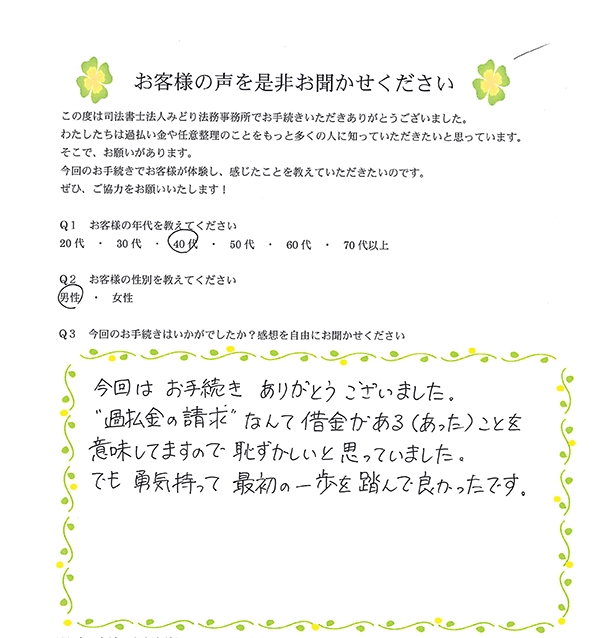 お客様の声を是非お聞かせください
この度は司法書士法人みどり法務事務所でお手続きいただきありがとうございました。
わたしたちは過払い金や任意整理のことをもっと多くの人に知っていただきたいと思っています。
そこで、お願いがあります。
今回のお手続きでお客様が体験し、感じたことを教えていただきたいのです。
ぜひ、ご協力をお願いいたします!
Q1 お客様の年代を教えてください
20代 ・ 30代 ・ 40代 ・ 50代 ・ 60代 ・ 70代以上
Q2 お客様の性別を教えてください
男性 ・ 女性
Q3 今回のお手続きはいかがでしたか?感想を自由にお聞かせください
今回は お手続き ありがとうございました。
"過払金の請求" なんて 借金がある(あった)ことを
意味してますので 恥ずかしいと思っていました。
でも 勇気持って 最初の一歩を踏んで良かったです。